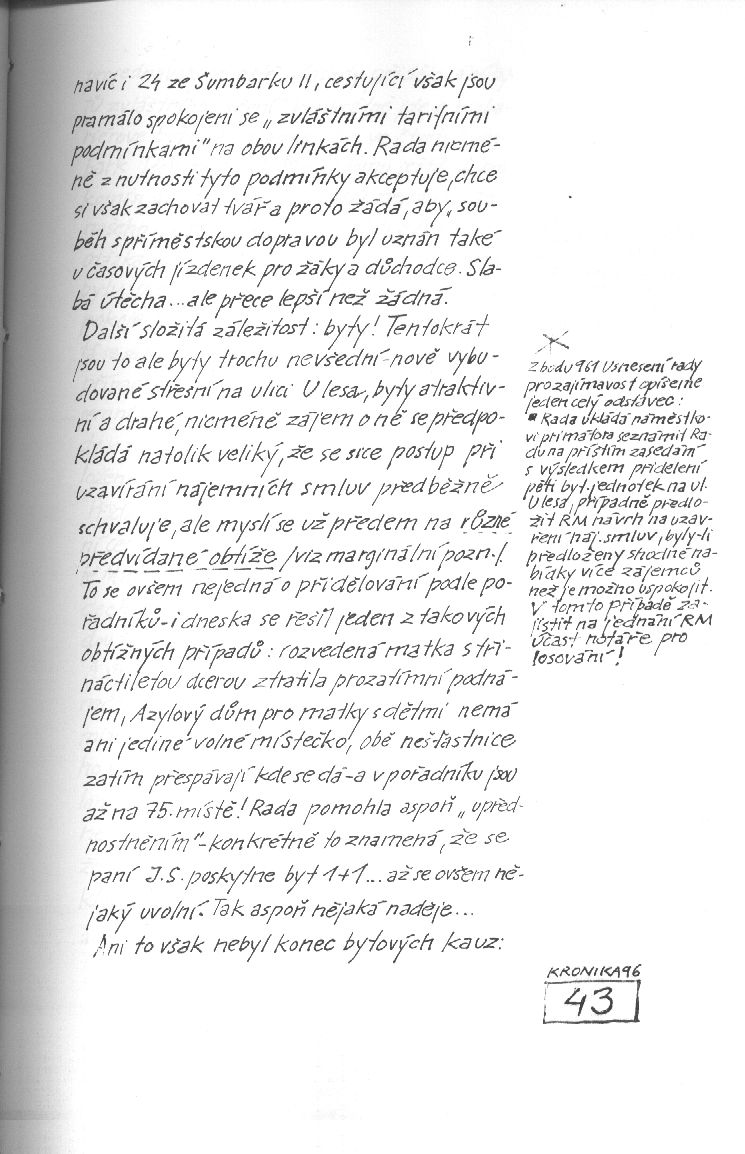 navíc i 24 ze Šumbarku II, cestující však jsou
pramálo spokojeni se „zvláštními tarifními
podmínkami" na obou linkách. Rada nicmé-
ně z nutnosti tyto podmínky akceptuje, chce
si však zachovat tvář a proto žádá, aby, sou-
běh s příměstskou dopravou byl uznán také
u časových jízdenek pro žáky a důchodce. Sla-
bá útěcha...ale přece lepší než žádná.
Další složitá záležitost: byty! Tentokrát
jsou to ale byty trochu nevšední-nově vybu-
dované střešní na ulici U lesa, byty atraktiv-
ní a drahé, nicméně zájem o ně se předpo-
kládá natolik veliký, že se sice postup při
uzavírání nájemních smluv předběžně
schvaluje, ale myslí se už předem na různé
předvídané obtíže /viz marginální pozn./.
To se ovšem nejedná o přidělování podle po-
řadníků-i dneska se řešil jeden z takových
obtížných případů: rozvedená matka s tři-
náctiletou dcerou ztratila prozatímní podná-
jem, Azylový dům pro matky s dětmi nemá
ani jediné volné místečko, obě nešťastnice
zatím přespávají kde se dá-a v pořadníku jsou
až na 75. místě! Rada pomohla aspoň „upřed-
nostněním"-konkrétně to znamená, že se
paní J.S. poskytne byt 1+1... až se ovšem ně-
jaký uvolní. Tak aspoň nějaká naděje...
Ani to však nebyl konec bytových kauz:
Z bodu 961 Usnesení rady
pro zajímavost opíšeme
jeden celý odstavec:
▪ Rada ukládá náměstko-
vi primátora seznámit Ra-
du na příštím zasedání
s výsledkem přidělení
pěti byt. jednotek na ul.
U lesa, případně předlo-
žit RM návrh na uzav-
ření náj. smluv, byly-li
předloženy shodné na-
bídky více zájemců
než je možno uspokojit.
V tomto případě za-
jistit na jednání RM
účast notáře pro
losování!
KRONIKA 96
43